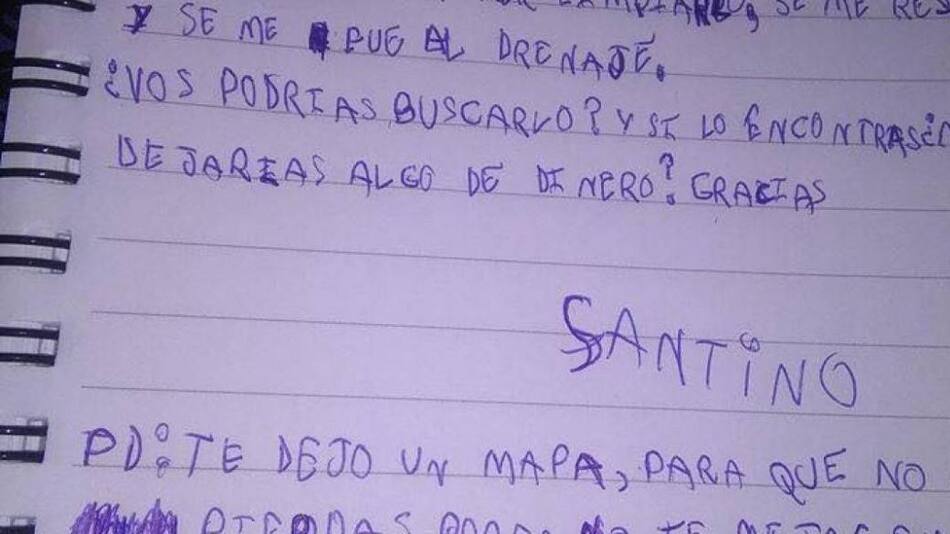 SE ME RES
Y SE ME FUE AL DRENAJE.
¿VOS PODRIAS BUSCARLO? Y SI LO ENCONTRAS¿
DEJARIAS ALGO DE DINERO? GRACIAS
SANTINO
PD: TE DEJO UN MAPA, PARA QUE NO
TE